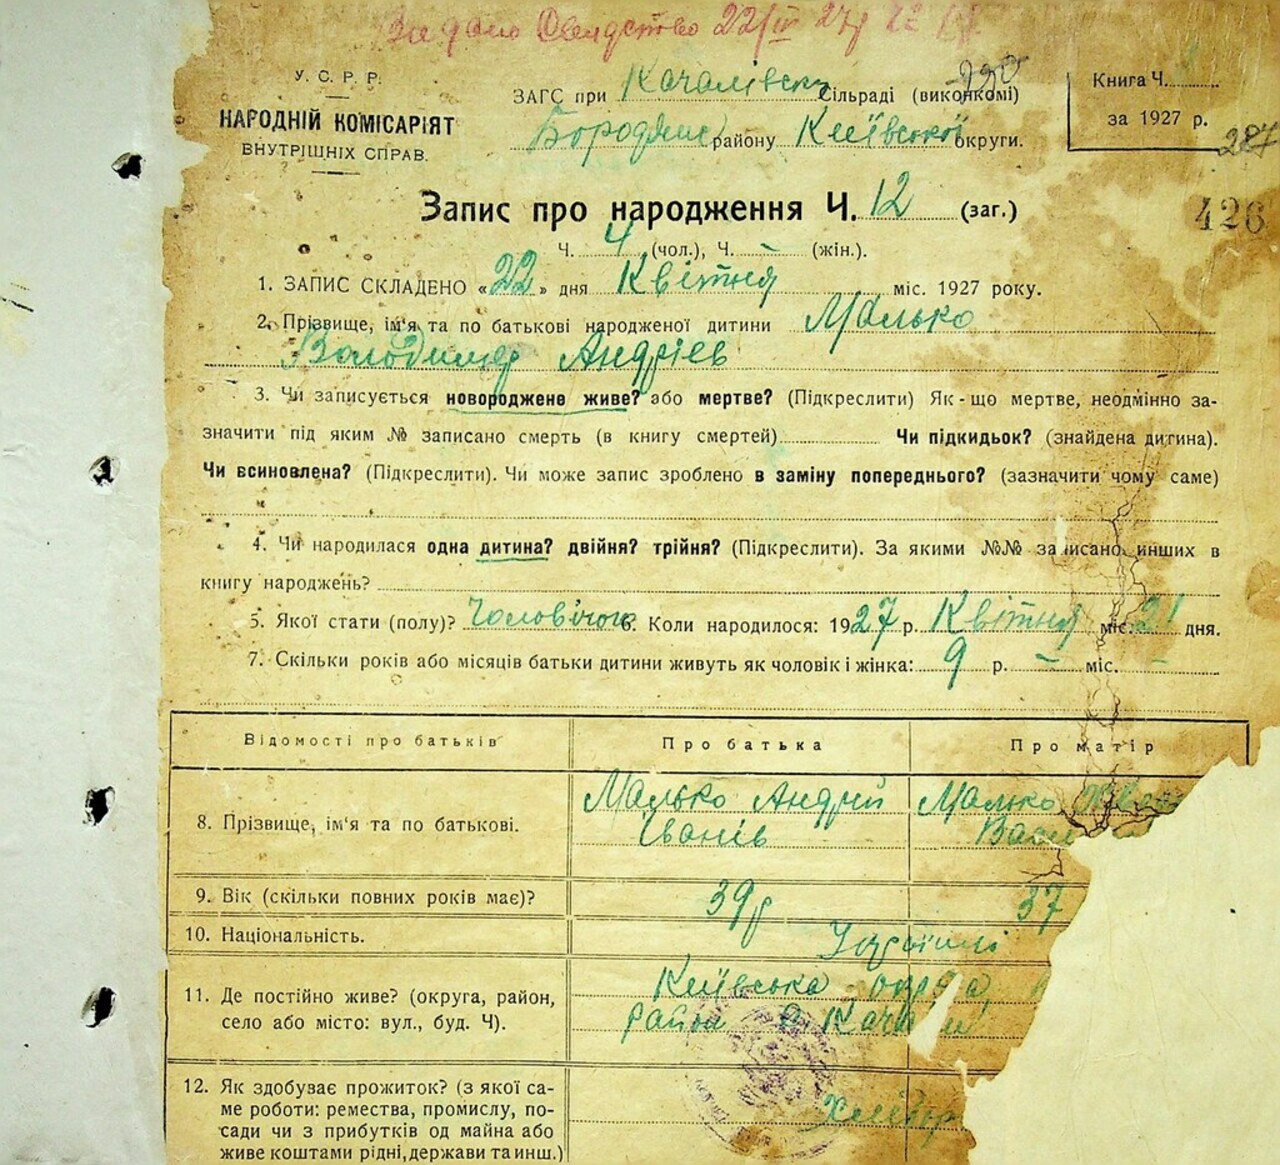 Видано Свидоцтво 22/IV 27р
У. С. Р. Р.
НАРОДНІЙ КОМІСАРІЯТ
ВНУТРІШНІХ СПРАВ.
ЗАГС при Качалівськ Сільраді (виконкомі)
Бородянс району Київської округи.
Книга Ч.
за 1927 р.
287
426
Запис про народження Ч. 12 (заг.)
Ч. 4 (чол.), Ч. – (жін.).
1. ЗАПИС СКЛАДЕНО «22» дня Квітня міс. 1927 року.
2. Прізвище, ім'я та по батькові народженої дитини Малько
Володимир Андріев
3. Чи записується новороджене живе? або мертве? (Підкреслити) Як-що мертве, неодмінно за-
значити під яким № записано смерть (в книгу смертей) Чи підкидьок? (знайдена дитина).
Чи всиновлена? (Підкреслити). Чи може запис зроблено в заміну попереднього? (зазначити чому саме)
4. Чи народилася одна дитина? двійня? трійня? (Підкреслити). За якими №№ записано инших в
книгу народжень?
5. Якої стати (полу)? Чоловічою 6. Коли народилось: 1927 р. Квітня міс. 21 дня.
7. Скільки років або місяців батьки дитини живуть як чоловік і жінка: 9 р. – міс. –
Відомості про батьків Про батька Про матір
8. Прізвище, ім'я та по батькові. Малько Андрій Малько
Іванів Васи
9. Вік (скільки повних років має)? 39 р 37
10. Національність. Українці
11. Де постійно живе? (округа, район, Київська округа,
село або місто: вул., буд. Ч). район
12. Як здобуває прожиток? (з якої са-
ме роботи: ремества, промислу, по-
сади чи з прибутків од майна або
живе коштами рідні, держави та инш.)